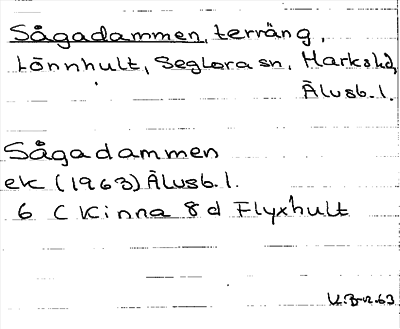 Sågadammen, terräng,
Lönnhult, Seglora sn, Marks hd,
Älvsb. l.
Sågadammen
ek (1963) Älvsb. l.
6 C Kinna 8 d Flyxhult